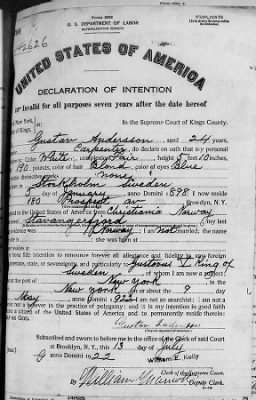 Form 2202
U. S. DEPARTMENT OF LABOR
No. 142626
UNITED STATES OF AMERICA
DECLARATION OF INTENTION
Invalid for all purposes seven years after the date hereof
of New York,
of Kings,
In the Supreme Court of Kings County.
Gustav Andersson, aged 24 years,
Carpenter, do declare on oath that my personal
Color White, complexion Fair, height 5 feet 10 inches,
190 pounds, color of hair Blond, color of eyes Blue
none
Stockholm Sweden
5 day of January, anno Domini 1898; I now reside
180 Prospect av, Brooklyn, N.Y.
United States of America from Christiania Norway
Stavangerfjord; my last
Norway; I am not married; the name
she was born at
fide intention to renounce forever all allegiance and fidelity to any foreign
state, or sovereignty, and particularly to Gustavus V King of
Sweden, of whom I am now a subject;
the port of New York, in the
New York, on or about the 9 day
May, anno Domini 1922; I am not an anarchist; I am not a
nor a believer in the practice of polygamy; and it is my intention in good faith
citizen of the United States of America and to permanently reside therein:
GOD.
Subscribed and sworn to before me in the office of the Clerk of said Court
at Brooklyn, N. Y., this 13 day of July
anno Domini 1922
William E. Kelly
Clerk of the Supreme Court.
By William
Deputy Clerk.